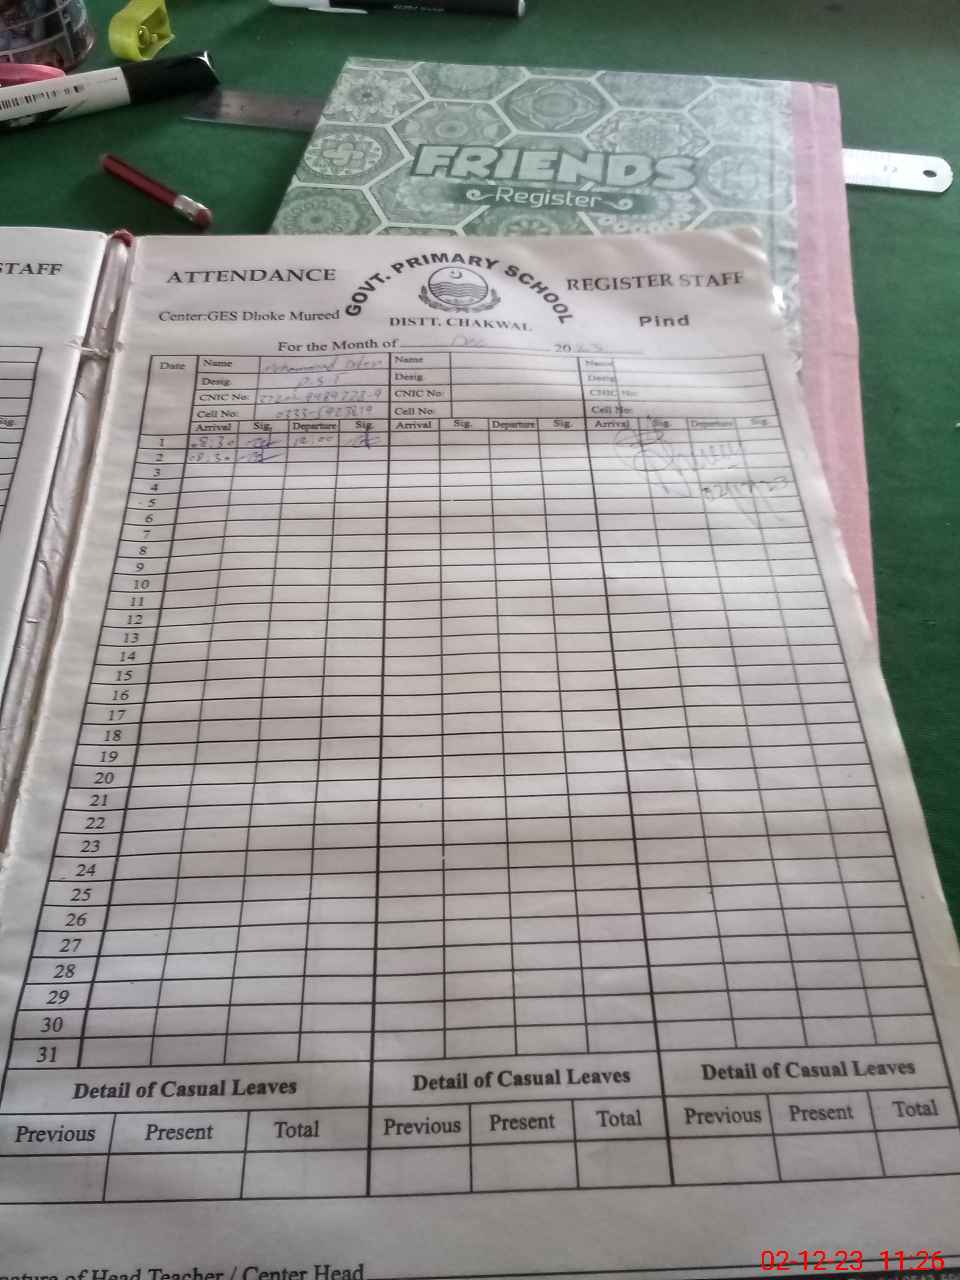 FRIENDS
Register
STAFF
ATTENDANCE
GOVT. PRIMARY SCHOOL
REGISTER STAFF
Center:GES Dhoke Mureed
DISTT. CHAKWAL
Pind
For the Month of Dec 20
Date Name Muhammad Name Name
Desig. P.S.T Desig. Desig
CNIC No: CNIC No: CNIC No:
Cell No: Cell No: Cell No:
Arrival Sig. Departure Sig. Arrival Sig. Departure Sig. Arrival Sig. Departure Sig.
1 08:30 12:00
2 08:30
3
4
5
6
7
8
9
10
11
12
13
14
15
16
17
18
19
20
21
22
23
24
25
26
27
28
29
30
31
Detail of Casual Leaves Detail of Casual Leaves Detail of Casual Leaves
Previous Present Total Previous Present Total Previous Present Total
nature of Head Teacher / Center Head
02-12-23 11:26